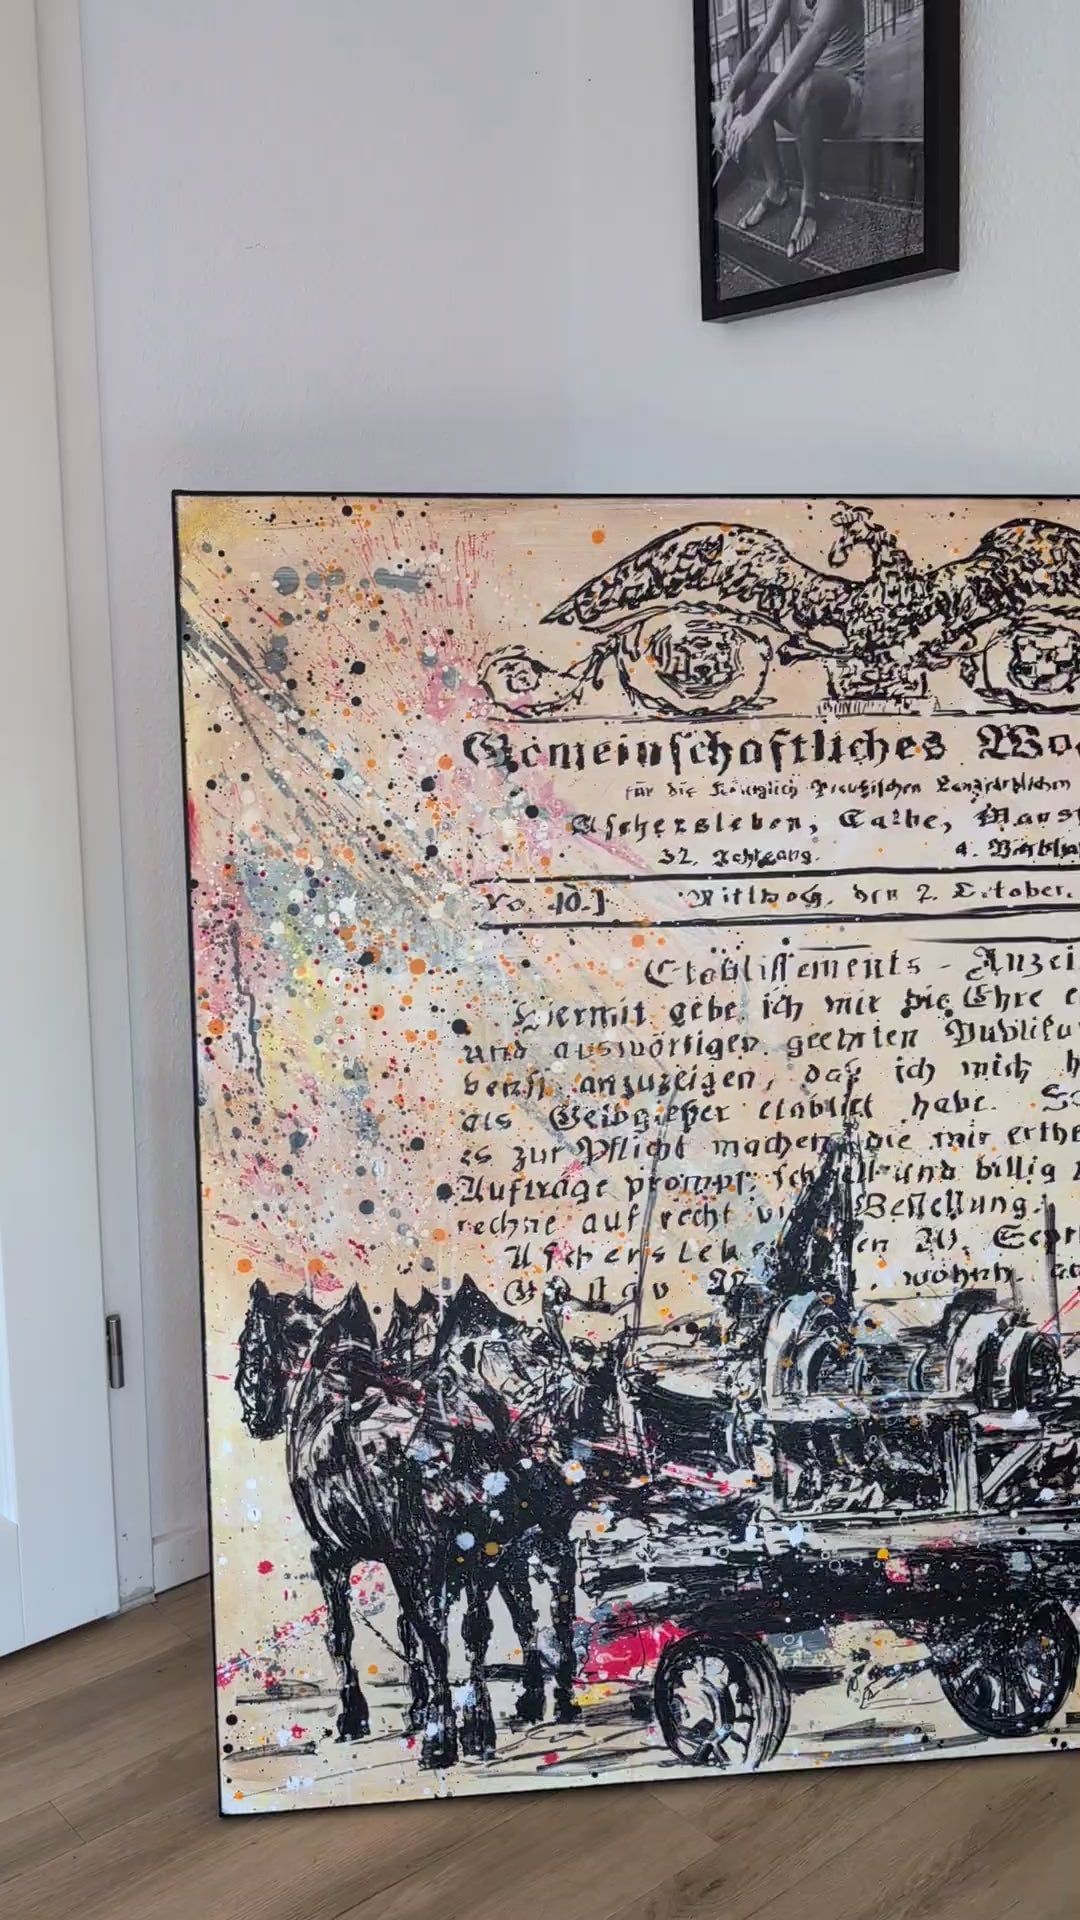 Gemeinschaftliches Wo
für die Königlich Preußischen Landräthlichen
Aschersleben, Calbe, Mans
32. Jahrgang. 4.
No. 40.] Mittwoch, den 2. October.
Etablissements - Anzei
Hiermit gebe ich mir die Ehre e
und auswärtigen geehrten Publiku
benst anzuzeigen, daß ich mich h
als Gelbgießer etablirt habe.
es zur Pflicht machen, die mir erthe
Aufträge prompt, schnell und billig
rechne auf recht Bestellung.
Aschersleben 20. Sept
wohnh.